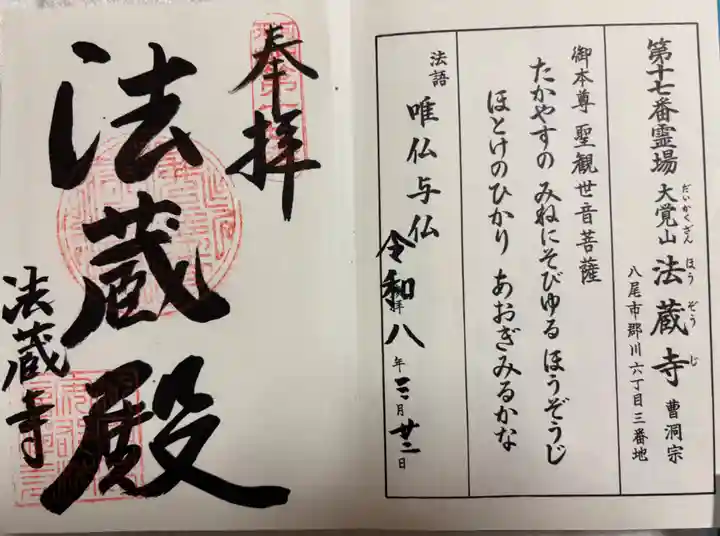 第十七番霊場 大覚山 法蔵寺 曹洞宗
だいかくざん ほうぞうじ
八尾市郡川六丁目三番地
御本尊 聖観世音菩薩
たかやすの みねにそびゆる ほうぞうじ
ほとけのひかり あおぎみるかな
法語 唯仏与仏
令和八年三月廿二日
拝
奉拝
法蔵殿
法蔵寺